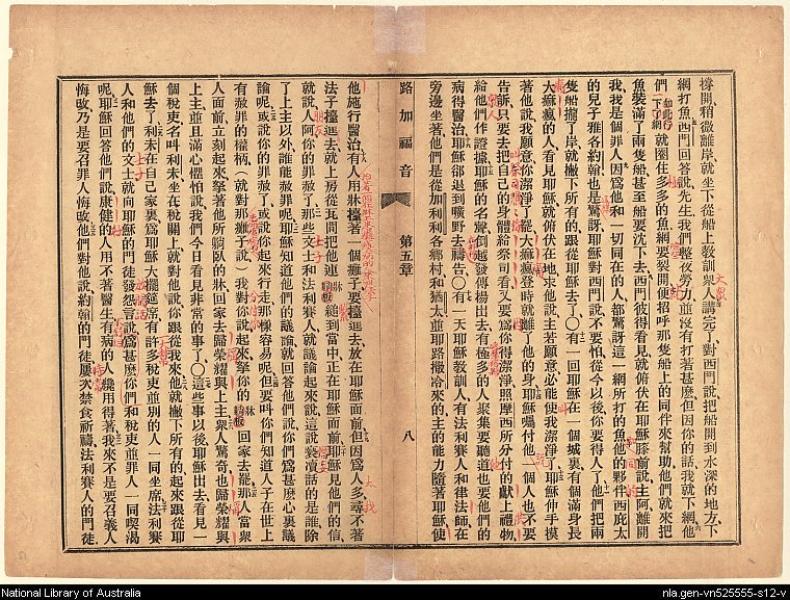 撐開稍微離岸就坐下從船上教訓眾人講完了、對西門說把船開到水深的地方、下
網打魚西門回答說先生我們整夜勞力並沒有打著甚麼、但因你的話、我就下網他
們如此行下了網就圈住多多的魚網要裂開便招呼那隻船上的同伴來幫助他們就來把
魚裝滿了兩隻船甚至船要沉下去西門彼得看見就俯伏在耶穌膝前說主阿離開
我我是個罪人因為他和一切同在的人都驚訝這一網所打的魚他的夥伴西庇太
的兒子雅各約翰也是驚訝耶穌對西門說不要怕從今以後你要得人了他們把兩
隻船攏了岸就撇下所有的跟從耶穌去了〇有一回耶穌在一個城裏有個滿身長
大痲瘋的人看見耶穌就俯伏在地求他說主若願意必能使我潔淨了耶穌伸手摸
著他說我願意你潔淨了罷大痲瘋登時就離了他的身耶穌囑付他一個人也不要
告訴只要去把自己的身體給祭司看又要為你得潔淨照摩西所分付的獻上禮物
給他們作證據耶穌的名聲倒越發傳揚出去有極多的人聚集要聽道也要他們的
病得醫治耶穌卻退到曠野去禱告〇有一天耶穌教訓人有法利賽人和律法師在
旁邊坐著他們是從加利利各鄉村和猶太並耶路撒冷來的主的能力隨著耶穌使
路加福音 第五章 八
他施行醫治有人用牀擡著一個癱子要擡進去放在耶穌面前但因為人多尋不著
法子擡進去就上房從瓦間把他連牀縋到當中正在耶穌面前耶穌見他們的信
就說人阿你的罪赦了那些文士和法利賽人就議論起來說這說褻瀆話的是誰除
了上主以外誰能赦罪呢耶穌知道他們的議論就回答他們說你們為甚麼心裏議
論呢或說你的罪赦了或說你起來行走那樣容易呢但要叫你們知道人子在世上
有赦罪的權柄(就對那癱子說)我對你說起來拏你的牀回家去罷那人當眾
人面前立刻起來拏著他所躺臥的牀回家去歸榮耀與上主眾人驚奇也歸榮耀與
上主並且滿心懼怕說我們今日看見非常的事了〇這些事以後耶穌出去看見一
個稅吏名叫利未坐在稅關上就對他說你跟從我來他就撇下所有的起來跟從耶
穌去了利未在自己家裏為耶穌大擺筵席有許多稅吏並別的人一同坐席法利賽
人和他們的文士就向耶穌的門徒發怨言說為甚麼你們和稅吏並罪人一同喫渴
呢耶穌回答他們說康健的人用不著醫生有病的人纔用得著我來不是要召義人
悔改乃是要召罪人悔改他們對他說約翰的門徒屢次禁食祈禱法利賽人的門徒
National Library of Australia
nla.gen-vn525555-s12-v